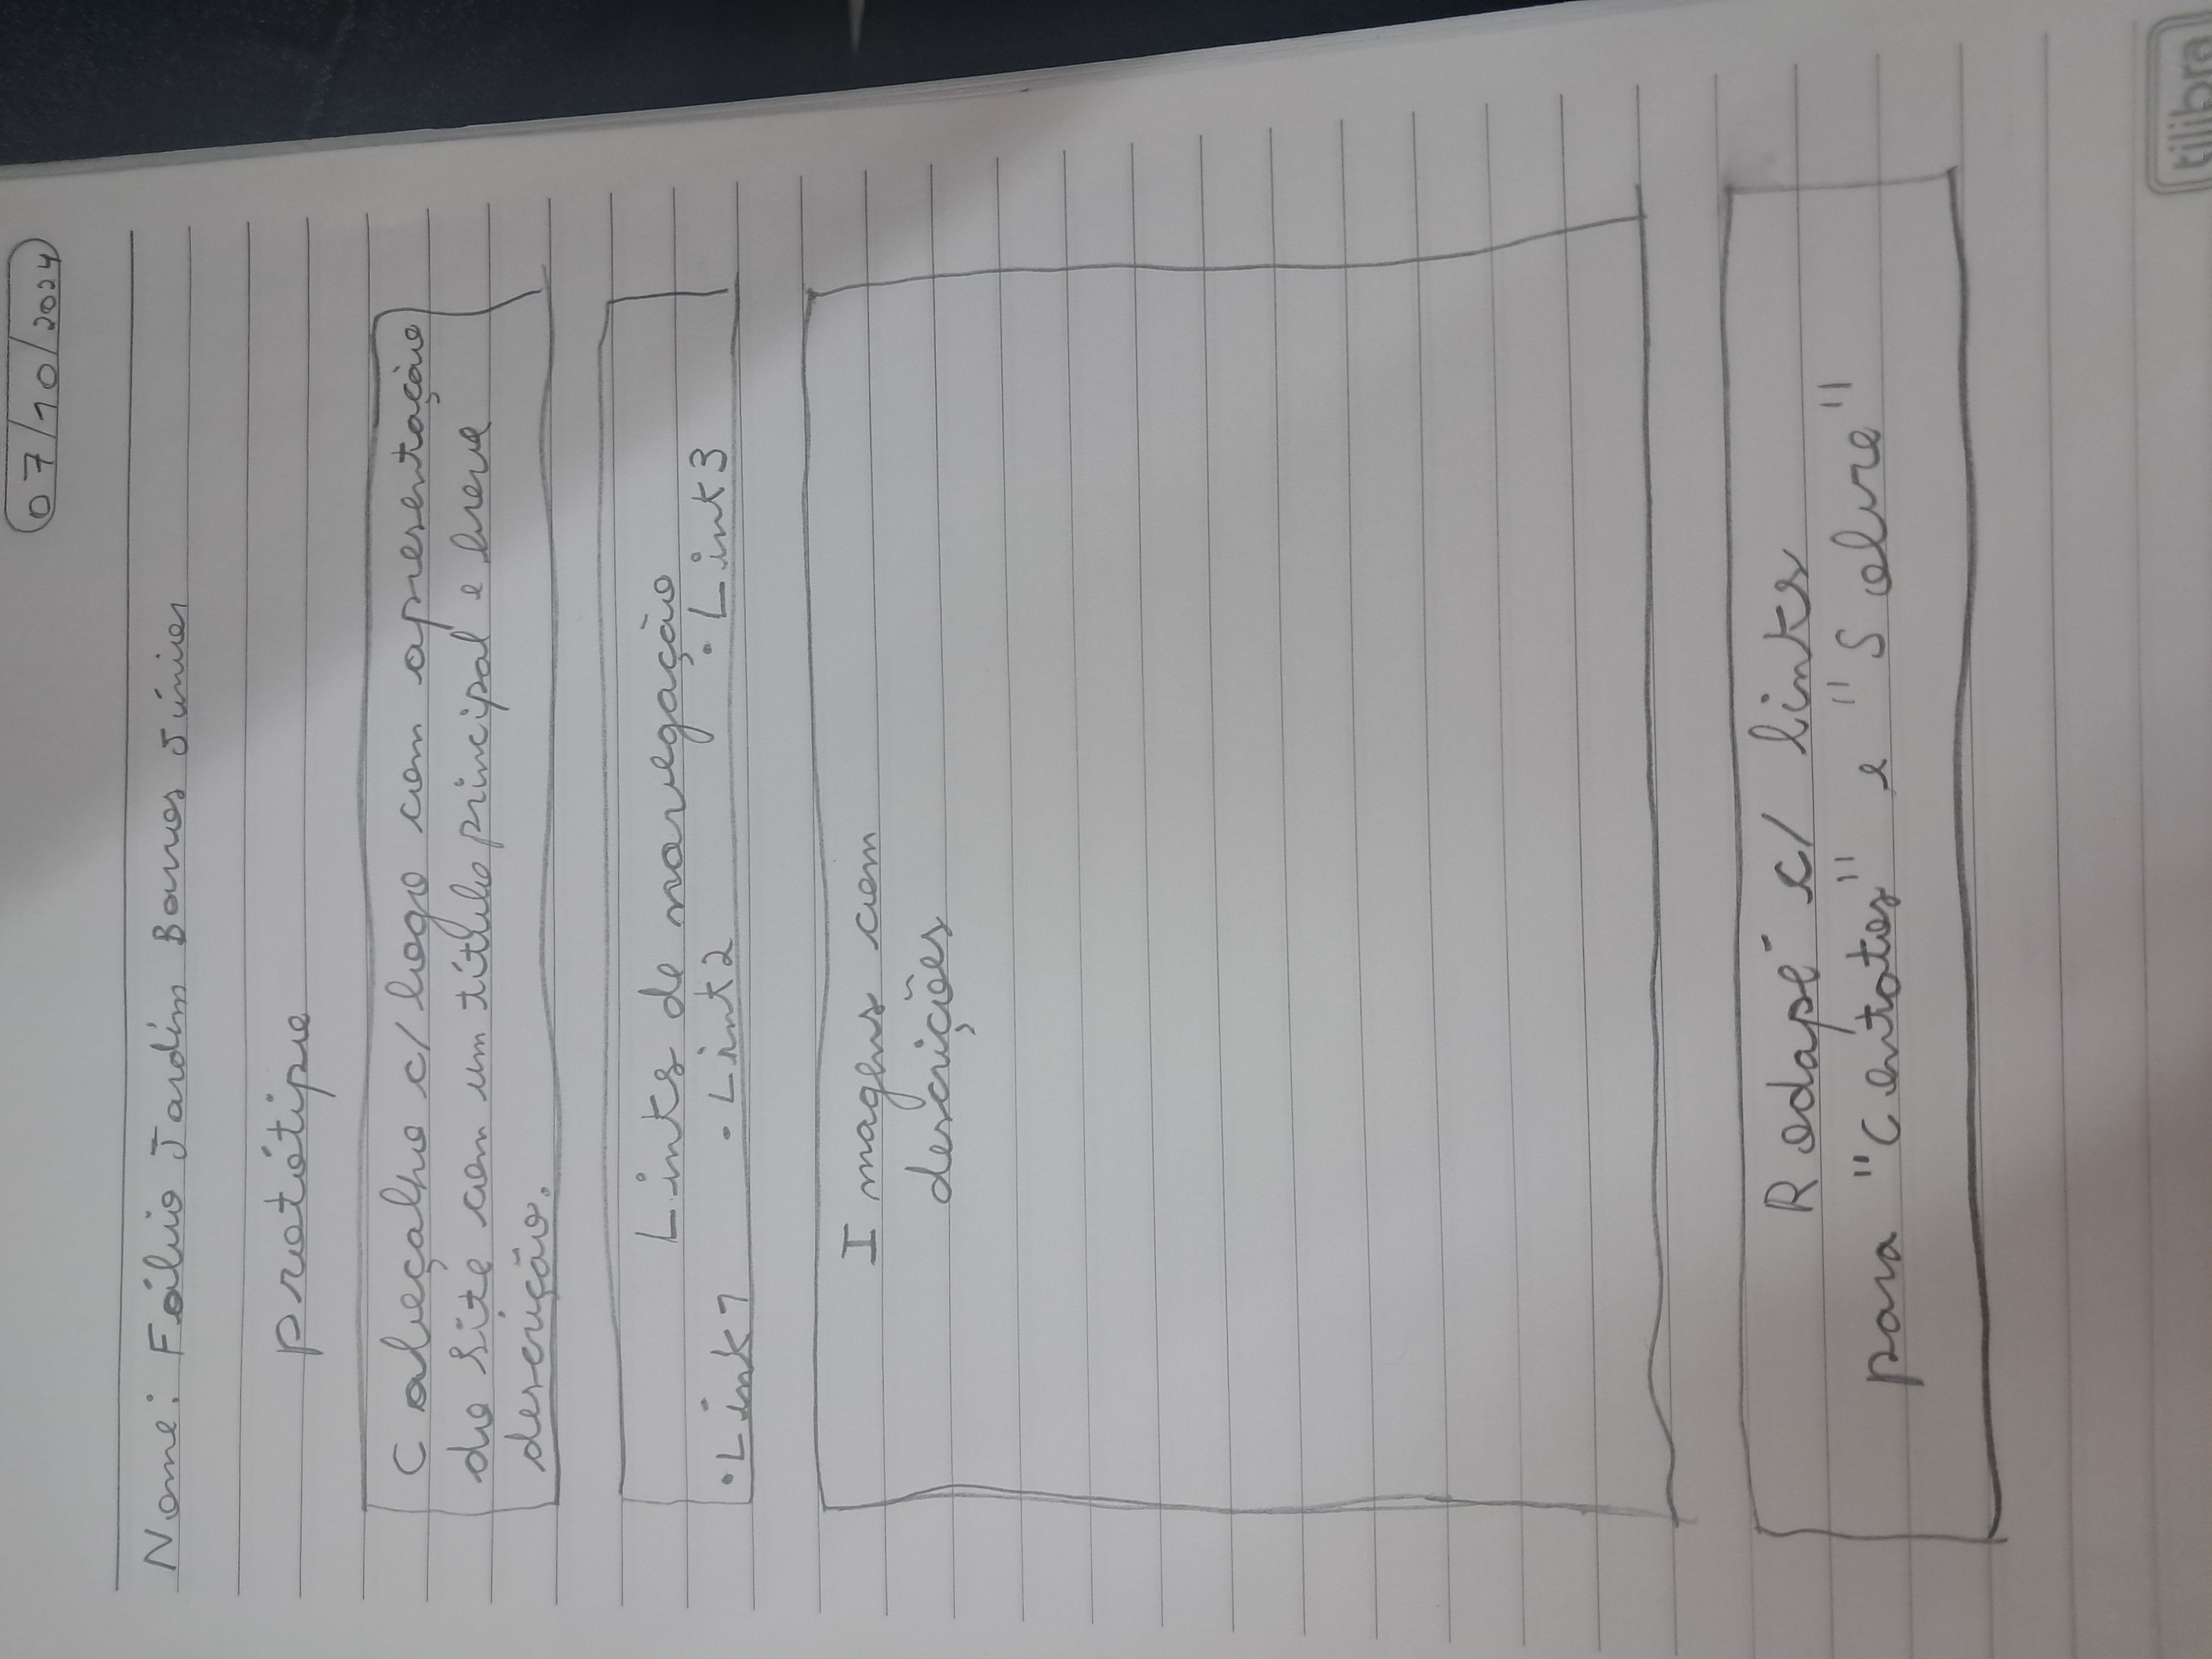 07/10/2024
Nome: Fábio Jardim Barros Júnior
protótipo
Cabeçalho c/ logo com apresentação
do site com um título principal e breve
descrição.
Links de navegação
• Link 1 • Link 2 • Link 3
Imagens com
descrições
Rodapé c/ links
para "Contatos" e "Sobre"
tilibra